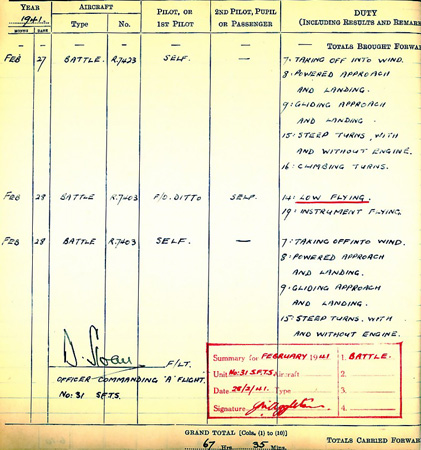 YEAR AIRCRAFT PILOT, OR 2ND PILOT, PUPIL DUTY
1941. Type No. 1ST PILOT OR PASSENGER (INCLUDING RESULTS AND REMARK
MONTH DATE
— — — — — — TOTALS BROUGHT FORWAR
FEB 27 BATTLE. R.7423 SELF. — 7. TAKING OFF INTO WIND.
8. POWERED APPROACH
AND LANDING.
9. GLIDING APPROACH
AND LANDING.
15. STEEP TURNS, WITH
AND WITHOUT ENGINE.
16. CLIMBING TURNS.
FEB 28 BATTLE R.7403 DITTO SELF. 14. LOW FLYING.
19. INSTRUMENT FLYING.
FEB 28 BATTLE R.7403 SELF. — 7. TAKING OFF INTO WIND.
8. POWERED APPROACH
AND LANDING.
9. GLIDING APPROACH
AND LANDING.
15. STEEP TURNS. WITH
AND WITHOUT ENGINE.
D. Sloan F/LT.
OFFICER COMMANDING 'A' FLIGHT.
No: 31 S.F.T.S.
Summary for FEBRUARY 1941 1. BATTLE.
Unit No: 31 S.F.T.S. Aircraft 2.
Date 28/2/41. Type 3.
Signature 4.
GRAND TOTAL [Cols. (1) to (10)]
67 Hrs. 35 Mins. TOTALS CARRIED FORWAR